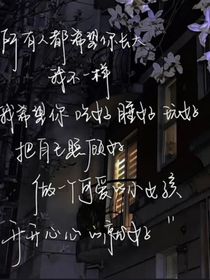 所有人都希望你长大
我不一样
我希望你 吃好 睡好 玩好
把自己照顾好
做一个可爱的小女孩
开开心心的就好"